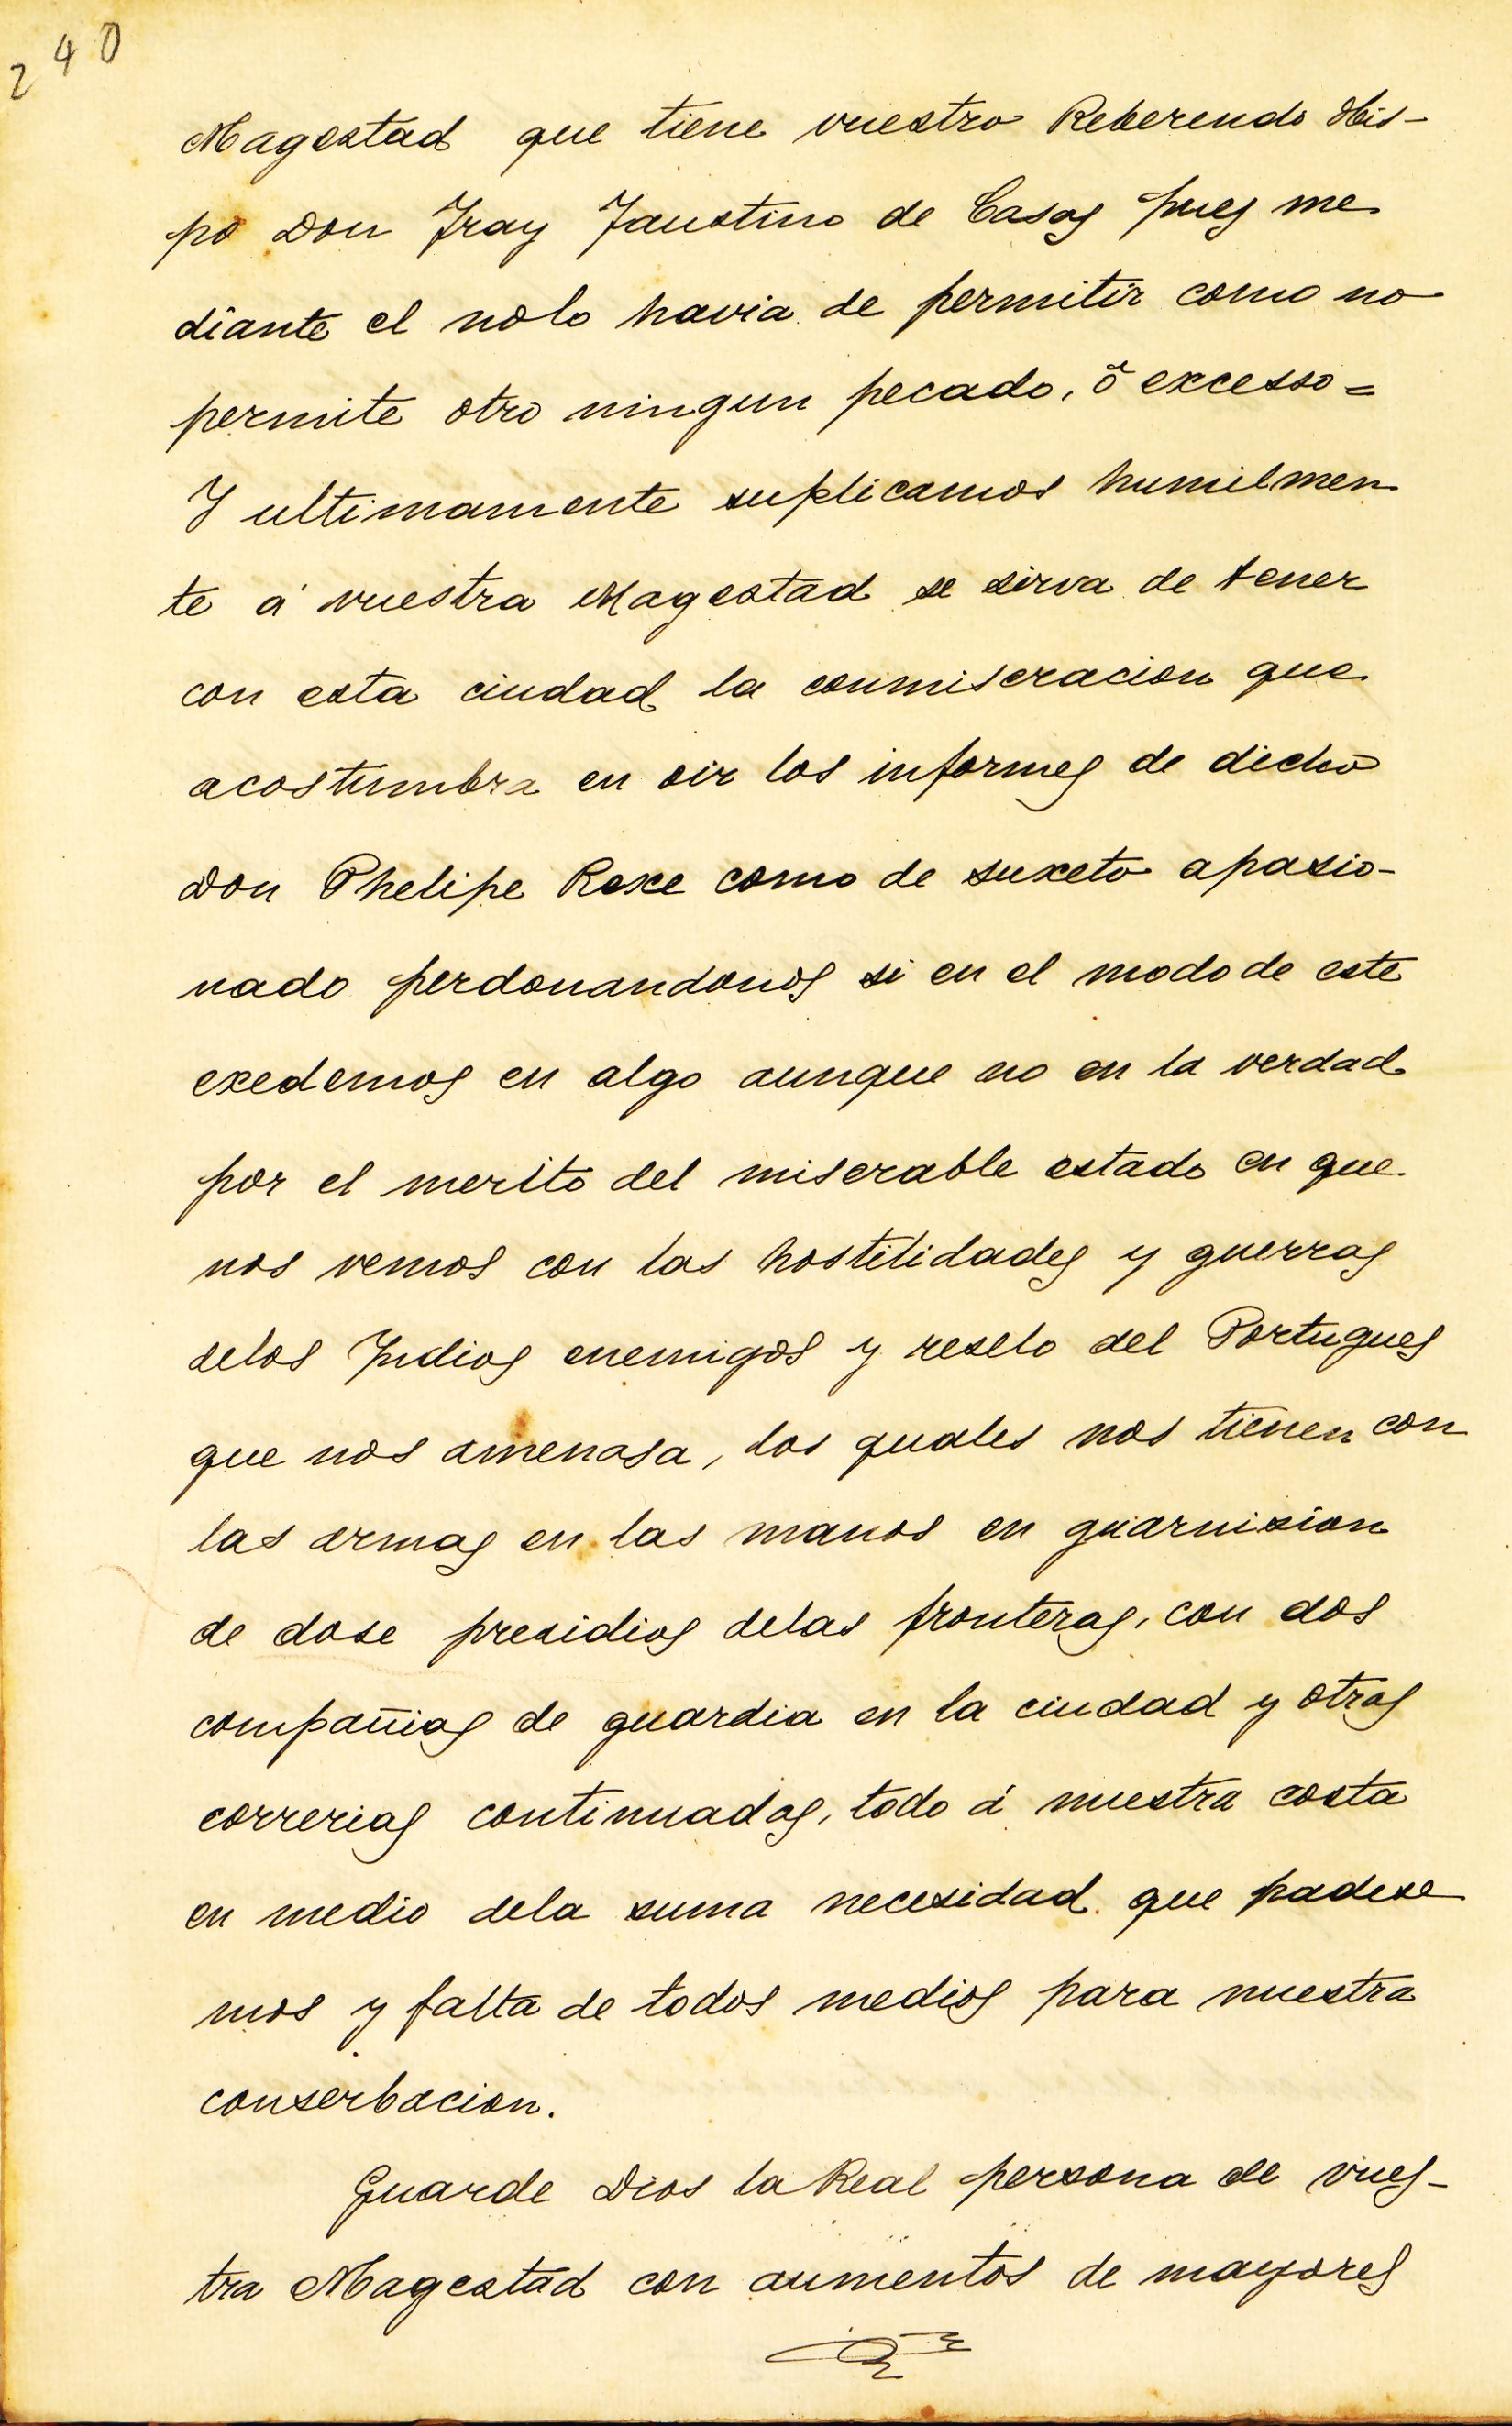 240
Magestad que tiene vuestro Reberendo Obis-
po Don Fray Faustino de Casas pues me
diante el nolo havia de permitir como no
permite otro ningun pecado, õ excesso=
Y ultimamente suplicamos humilmen
te á vuestra Magestad se sirva de tener
con esta ciudad la conmiseracion que
acostumbra en oir los informes de dicho
Don Phelipe Rexe como de suxeto apasio-
nado perdonandonos si en el modo de este
exedemos en algo aunque no en la verdad
por el merito del miserable estado en que
nos vemos con las hostilidades y guerras
delos Indios enemigos y reselo del Portugues
que nos amenasa, los quales nos tienen con
las armas en las manos en guarnision
de dose presidios delas fronteras, con dos
compañias de guardia en la ciudad y otras
correrias continuadas, todo á nuestra costa
en medio dela suma necesidad que padese
mos y falta de todos medios para nuestra
conserbacion.
Guarde Dios la Real persona de vues-
tra Magestad con aumentos de mayores